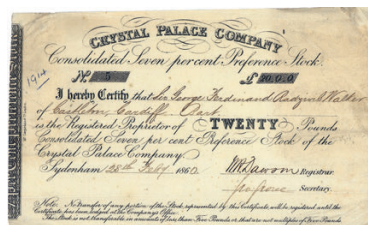 CRYSTAL PALACE COMPANY
Consolidated Seven per cent Preference Stock.
1914
No. 5 £ 20.0.0
I hereby Certify that Sir George Ferdinand Walker
of Castleton, Cardiff, Bart
is the Registered Proprietor of TWENTY Pounds
Consolidated Seven per cent Preference Stock of the
Crystal Palace Company.
Sydenham 28th 1860.
Registrar.
Secretary.
Note: No transfer of any portion of the Stock represented by this Certificate will be registered until the
Certificate has been lodged at the Company's Office.
The Stock is not transferable in amounts of less than Five Pounds or that are not multiples of Five Pounds